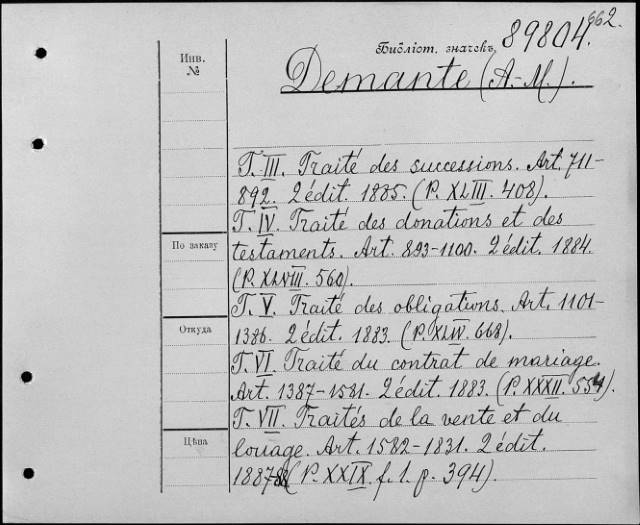 662.
Библіот. значекъ 89804.
Инв. №
Demante (A-M.).
T. III. Traité des successions. Art. 711-
892. 2 édit. 1885. (P. XLIII. 408).
T. IV. Traité des donations et des
По заказу
testaments. Art. 893-1100. 2 édit. 1884.
(P. XLVIII. 560).
T. V. Traité des obligations. Art. 1101-
Откуда
1386. 2 édit. 1883. (P. XLIV. 668).
T. VI. Traité du contrat de mariage.
Art. 1387-1581. 2 édit. 1883. (P. XXXII. 554).
T. VII. Traités de la vente et du
Цѣна
louage. Art. 1582-1831. 2 édit.
1887-88 (P. XXIX. f. 1. p. 394).